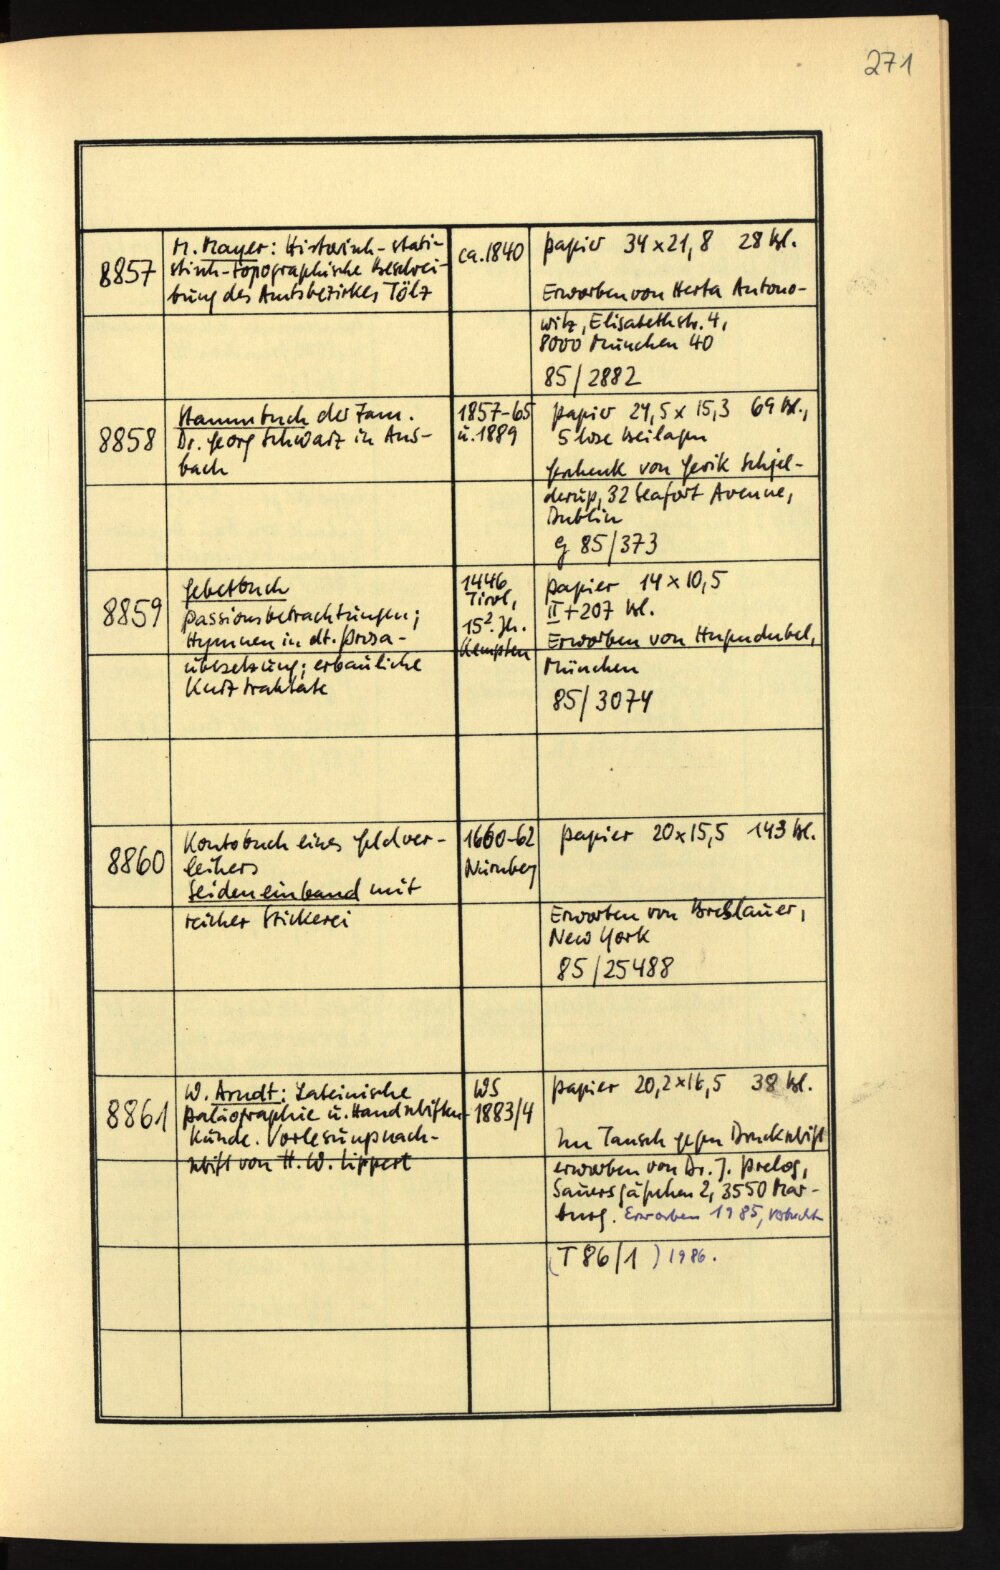 271
8857
M. Mayer: Historisch-stati-
stisch-topographische Beschrei-
bung des Amtsbezirkes Tölz
ca. 1840
Papier 34 x 21,8 28 Bl.
Erworben von Herta Antono-
witz, Elisabethstr. 4,
8000 München 40
85/2882
8858
Stammbuch der Fam.
Dr. Georg Schwarz in Ans-
bach
1857-65
u. 1889
Papier 24,5 x 15,3 69 Bl.,
5 lose Beilagen
Geschenk von Gerik Schjel-
derup, 32 Seafort Avenue,
Dublin
G 85/373
8859
Gebetbuch
Passionsbetrachtungen;
Hymnen in dt. Prosa-
übersetzung; erbauliche
Kurztraktate
1446
Tirol,
15². Jh.
Kempten
Papier 14 x 10,5
II + 207 Bl.
Erworben von Hugendubel,
München
85/3074
8860
Kontobuch eines Geldver-
leihers
Seideneinband mit
reicher Stickerei
1660-62
Nürnberg
Papier 20 x 15,5 143 Bl.
Erworben von Breslauer,
New York
85/25488
8861
W. Arndt: Lateinische
Paläographie u. Handschriften-
kunde. Vorlesungsnach-
schrift von H. W. Lippert
WS
1883/4
Papier 20,2 x 16,5 38 Bl.
Im Tausch gegen Druckschrift
erworben von Dr. J. Prelog,
Sauersgäßchen 2, 3550 Mar-
burg. Erworben 1985, verbucht
(T 86/1) 1986.